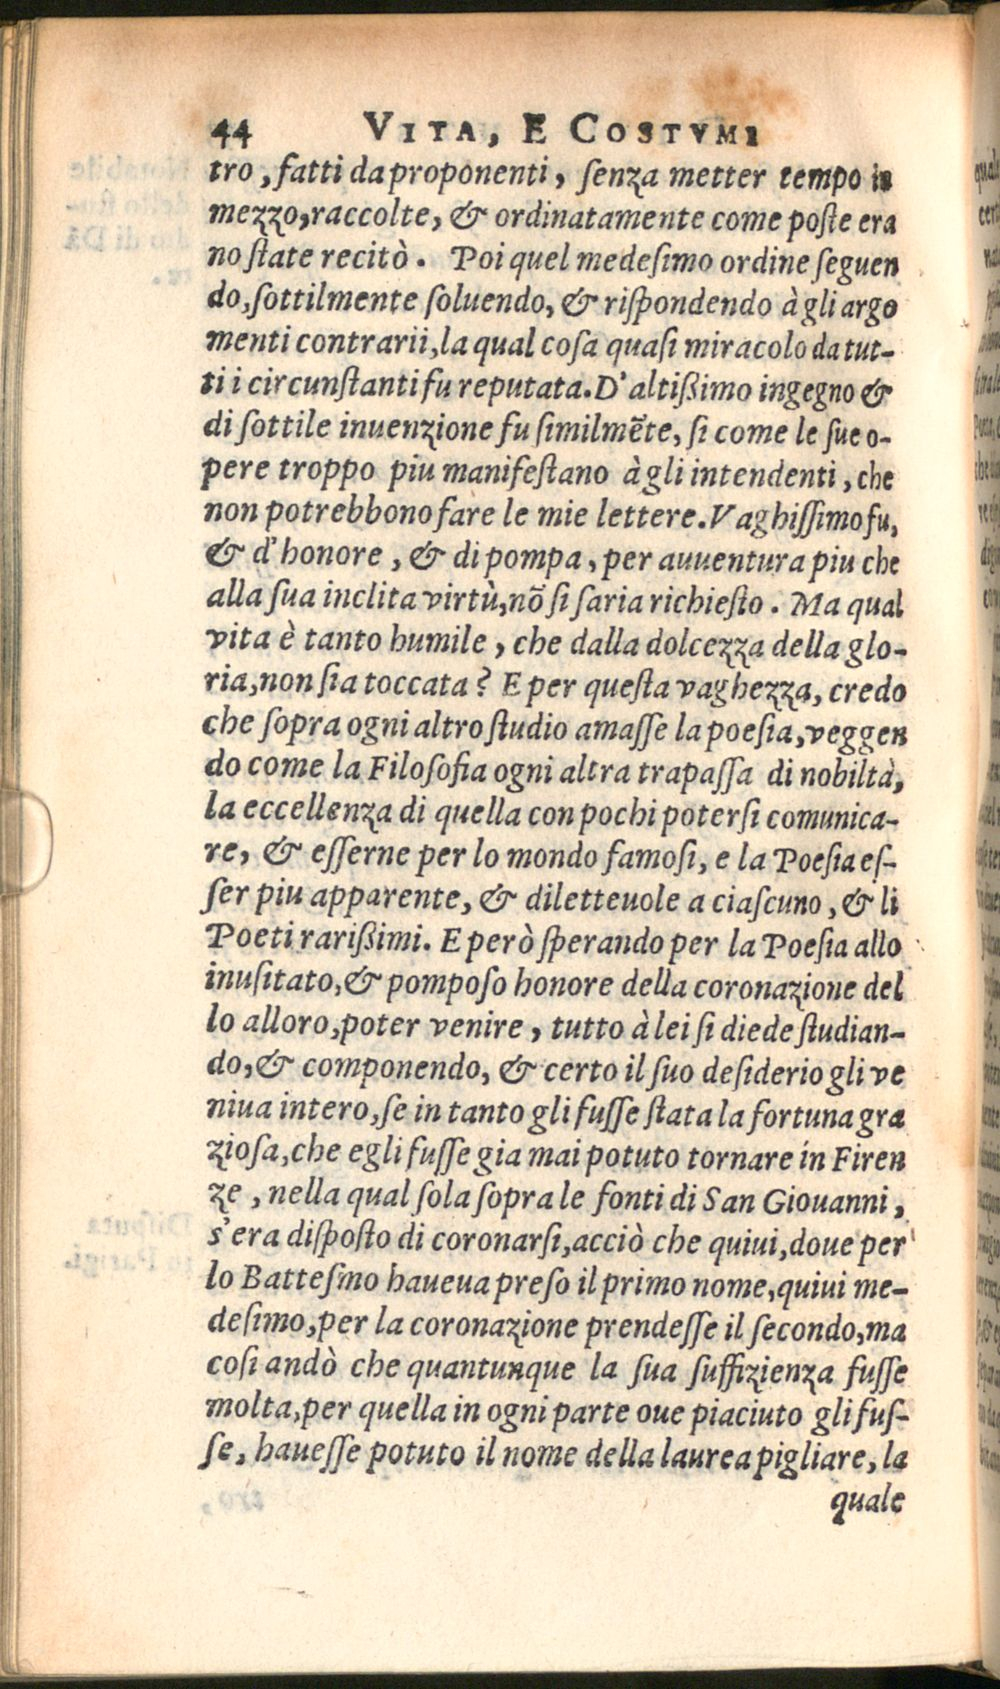 44 VITA, E COSTVMI
tro, fatti da proponenti, ſenza metter tempo in
mezzo, raccolte, & ordinatamente come poſte era
no ſtate recitò. Poi quel medeſimo ordine ſeguen
do, ſottilmente ſoluendo, & riſpondendo à gli argo
menti contrarii, la qual coſa quaſi miracolo da tut-
ti i circunſtanti fu reputata. D'altißimo ingegno &
di ſottile inuenzione fu ſimilmẽte, ſi come le ſue o-
pere troppo piu manifeſtano à gli intendenti, che
non potrebbono fare le mie lettere. Vaghiſſimo fu,
& d'honore, & di pompa, per auuentura piu che
alla ſua inclita virtù, nõ ſi ſaria richieſto. Ma qual
vita è tanto humile, che dalla dolcezza della glo-
ria, non ſia toccata? E per queſta vaghezza, credo
che ſopra ogni altro ſtudio amaſſe la poeſia, veggen
do come la Filoſofia ogni altra trapaſſa di nobiltà,
la eccellenza di quella con pochi poterſi comunica-
re, & eſſerne per lo mondo famoſi, e la Poeſia eſ-
ſer piu apparente, & diletteuole a ciaſcuno, & li
Poeti rarißimi. E però ſperando per la Poeſia allo
inuſitato, & pompoſo honore della coronazione del
lo alloro, poter venire, tutto à lei ſi diede ſtudian-
do, & componendo, & certo il ſuo deſiderio gli ve
niua intero, ſe in tanto gli fuſſe ſtata la fortuna gra
zioſa, che egli fuſſe gia mai potuto tornare in Firen
ze, nella qual ſola ſopra le fonti di San Giouanni,
s'era diſpoſto di coronarſi, acciò che quiui, doue per
lo Batteſmo haueua preſo il primo nome, quiui me-
deſimo, per la coronazione prendeſſe il ſecondo, ma
coſi andò che quantunque la ſua ſuffizienza fuſſe
molta, per quella in ogni parte oue piaciuto gli fuſ-
ſe, haueſſe potuto il nome della laurea pigliare, la
quale